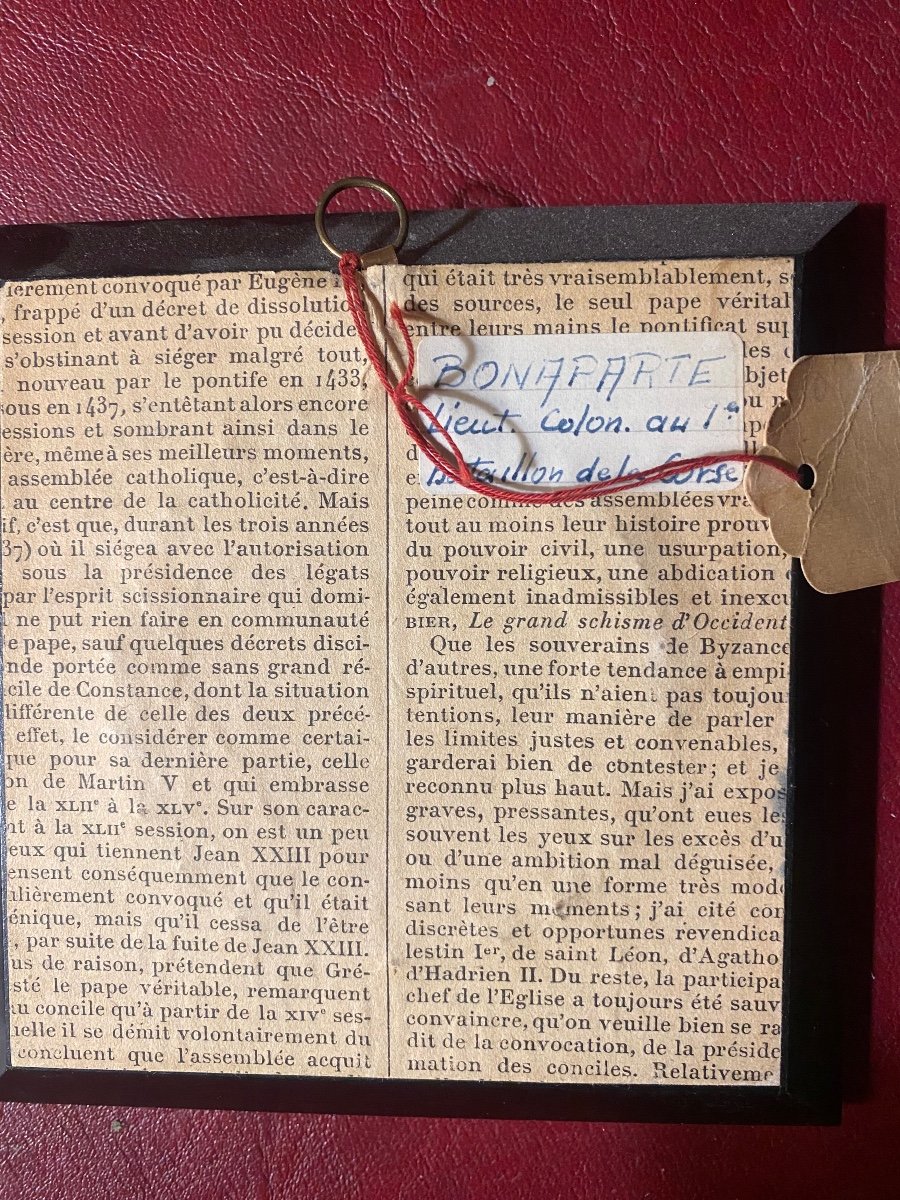 ièrement convoqué par Eugène
frappé d'un décret de dissolutio
session et avant d'avoir pu décide
s'obstinant à siéger malgré tout,
nouveau par le pontife en 1433,
ous en 1437, s'entêtant alors encore
essions et sombrant ainsi dans le
ère, même à ses meilleurs moments,
assemblée catholique, c'est-à-dire
au centre de la catholicité. Mais
if, c'est que, durant les trois années
37) où il siégea avec l'autorisation
sous la présidence des légats
par l'esprit scissionnaire qui domi-
ne put rien faire en communauté
e pape, sauf quelques décrets disci-
nde portée comme sans grand ré-
cile de Constance, dont la situation
différente de celle des deux précé-
effet, le considérer comme certai-
que pour sa dernière partie, celle
on de Martin V et qui embrasse
e la XLIIᵉ à la XLVᵉ. Sur son carac-
nt à la XLIIᵉ session, on est un peu
eux qui tiennent Jean XXIII pour
ensent conséquemment que le con-
lièrement convoqué et qu'il était
énique, mais qu'il cessa de l'être
, par suite de la fuite de Jean XXIII.
us de raison, prétendent que Gré-
sté le pape véritable, remarquent
u concile qu'à partir de la XIVᵉ ses-
uelle il se démit volontairement du
concluent que l'assemblée acquit
qui était très vraisemblablement, s
des sources, le seul pape vérital
entre leurs mains le pontificat sup
les
BONAPARTE
bjet
Lieut. Colon. au 1er
Bataillon de la Corse
peine comme des assemblées vra
tout au moins leur histoire prouv
du pouvoir civil, une usurpation,
pouvoir religieux, une abdication
également inadmissibles et inexcu
BIER, Le grand schisme d'Occident
Que les souverains de Byzance
d'autres, une forte tendance à empi
spirituel, qu'ils n'aient pas toujou
tentions, leur manière de parler
les limites justes et convenables,
garderai bien de contester; et je
reconnu plus haut. Mais j'ai expos
graves, pressantes, qu'ont eues le
souvent les yeux sur les excès d'u
ou d'une ambition mal déguisée,
moins qu'en une forme très mod
sant leurs moments; j'ai cité cor
discrètes et opportunes revendica
lestin Iᵉʳ, de saint Léon, d'Agatho
d'Hadrien II. Du reste, la participa
chef de l'Eglise a toujours été sauv
convaincre, qu'on veuille bien se ra
dit de la convocation, de la préside
mation des conciles. Relativeme